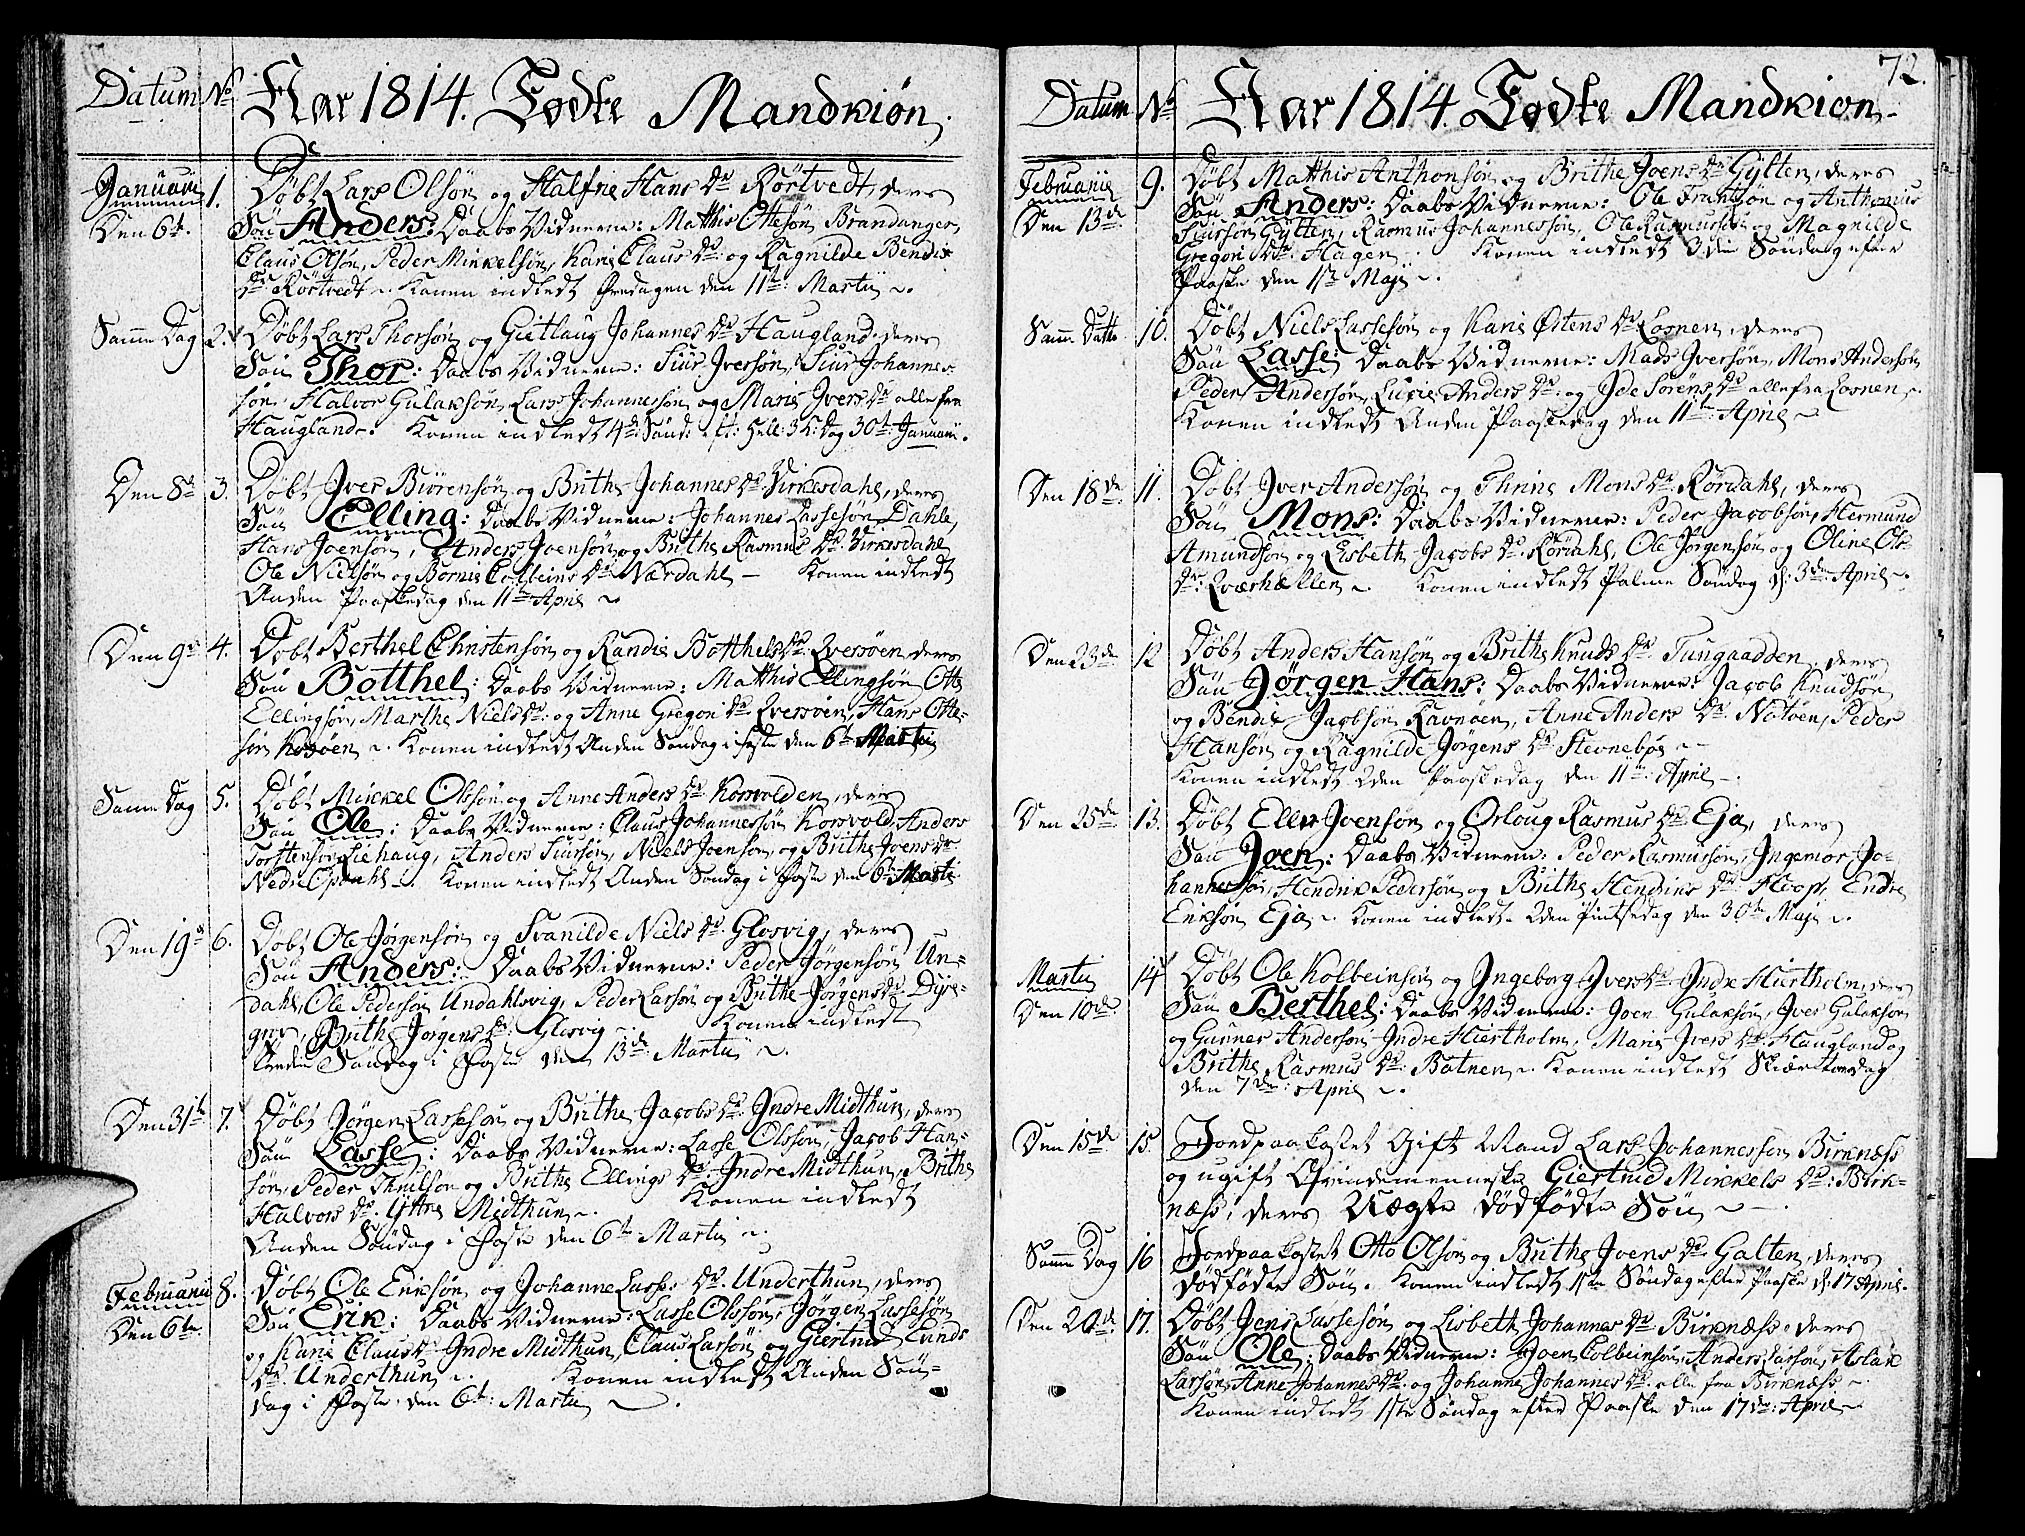 Datum No Aar 1814. Fødte Mandkiøn.
Januarii 1. Døbt Lars Olsøn og Halfrie Hans Dr Rörtvedt, deres
Den 6te Søn Anders: Daabs Vidnerne: Matthis Ottesøn Brandanger
Claus Olsøn, Peder Minkelsøn, Karie Claus Dr: og Ragnilde Bendix
Dr Rörtvedt. Konen indledt Fredagen den 11te Martii
Samme Dag 2. Døbt Lars Thorsøn og Gietlaug Johannes Dr Haugland, deres
Søn Thor: Daabs Vidnerne: Siur Iversøn, Siur Johannes-
søn, Halvor Gulaksøn, Lars Johannessøn og Marie Ivers Dr alle fra
Haugland. Konen indledt 4de Sønd: eft: Hell: 3K: Dag 30te Januarii.
Den 8de 3. Døbt Iver Biörensøn og Brithe Johannes Dr: Virkesdahl, deres
Søn Elling: Daabs Vidnerne: Johannes Lassesøn Dahle,
Hans Joensøn, Anders Joensøn og Brithe Rasmus Dr: Virkesdahl
Ole Nielsøn og Bornie Colbeins Dr Nærdahl - Konen indledt
Anden Paaskedag den 11te April
Den 9de 4. Døbt Berthel Christensøn og Randie Botthels Dr: Qversøen, deres
Søn Botthel: Daabs Vidnerne: Matthis Ellingsøn, Otte
Ellingsøn, Marthe Niels Dr: og Anne Gregori Dr: Qversøen, Hans Otte-
søn Kosøen. Konen indledt Anden Søndag i Faste den 6te Martii
Samme Dag 5. Døbt Mikkel Olssøn og Anne Anders Dr Korsvolden, deres
Søn Ole: Daabs Vidnerne: Claus Johannessøn Korsvold, Anders
Torstensøn Liehaug, Anders Siursøn, Niels Joensøn, og Brithe Joens Dr
Nedre Opdahl. Konen indledt Anden Søndag i Faste den 6te Martii
Den 19de 6. Døbt Ole Jørgensøn og Svanilde Niels Dr: Glosvig, deres
Søn Anders: Daabs Vidnerne: Peder Jørgensøn Un-
dahl, Ole Pedersøn Undahlsvig, Peder Larsøn og Brithe Jørgens Dr. Dyre-
grov, Brithe Jørgens Dr: Glosvig. Konen indledt
Tredie Søndag i Faste den 13de Martii
Den 31te 7. Døbt Jørgen Lassesøn og Brithe Jacobs Dr: Indre Midthun, deres
Søn Lasse: Daabs Vidnerne: Lasse Olssøn, Jacob Han-
søn, Peder Thrulsøn og Brithe Ellings Dr: Indre Midthun, Brithe
Halvors Dr. Yttre Midthun. Konen indledt
Anden Søndag i Faste den 6te Martii
Februarii 8. Døbt Ole Eriksøn og Johanne Lasse Dr. Underthun, deres
Den 6te Søn Erik: Daabs Vidnerne: Lasse Olssøn, Jørgen Lassesøn
og Karie Claus Dr Indre Midthun, Claus Larsøn og Giertrud Lunds
Dr. Underthun. Konen indledt Anden Søn-
dag i Faste, den 6te Martii
72.
Datum No Aar 1814. Fødte Mandkiøn
Februarii 9. Døbt Matthis Anthonsøn og Brithe Joens Dr Gÿtten, deres
Den 13de Søn Anders: Daabs Vidnerne: Ole Frantsøn og Anthonius
Siursøn Gÿtten, Rasmus Johannessøn, Ole Rasmussøn og Magnilde
Gregori Dr. Hagen. Konen indledt 3die Søndag efter
Paaske den 1ste Maji
Samme Datto 10. Døbt Niels Lassesøn og Karie Østens Dr Losnen, deres
Søn Lasse: Daabs Vidnerne: Mads Iversøn, Mons Andersøn
Peder Andersøn, Lucie Anders Dr. og Ide Sörens Dr alle fra Losnen.
Konen indledt Anden Paaskedag den 11te April
Den 18de 11. Døbt Iver Andersøn og Thrine Mons Dr. Rørdahl, deres
Søn Mons: Daabs Vidnerne: Peder Jacobsøn, Hermund
Amundsøn og Lisbeth Jacobs Dr. Rørdahl, Ole Jørgensøn og Oline Ols-
Dr. Qværhællen. Konen indledt Palme Søndag d: 3die April
Den 23de 12 Døbt Anders Hansøn og Brithe Knuds Dr. Tungaadden, deres
Søn Jørgen Hans: Daabs Vidnerne: Jacob Knudsøn
og Bendix Jacobsøn Ravnøen, Anne Anders Dr. Notøen, Peder
Hansøn og Ragnilde Jørgens Dr Stevnebøe
Konen indledt 2den Paaskedag den 11te April
Den 25de 13. Døbt Eller Joensøn og Orloug Rasmus Dr: Eja, deres
Søn Joen: Daabs Vidnerne: Peder Rasmussøn, Ingemor Jo-
hannessøn, Hendrik Pedersøn og Brithe Hendriks Dr Hoop, Endre
Eriksøn Eja. Konen indledt 2den Pintsedag den 30te Maji
Martii 14 Døbt Ole Kolbeinsøn og Ingeborg Ivers Dr Indre Hiertholm, deres
Den 10de Søn Berthel: Daabs Vidnerne: Joen Gulaksøn, Iver Gulaksøn
og Gunner Andersøn Indre Hiertholm, Marie Ivers Dr. Haugland og
Brithe Rasmus Dr: Botnen. Konen indledt Skiærtorsdag
den 7de: April
Den 15de 15. Jordpaakastet Gift Mand Lars Johannessøn Birknæss
og ugift Qvindemenneske Giertrud Mikkels Dr: Birk-
næss, deres Uægte dödfödte Søn
Samme Dag 16 Jordpaakastet Otto Olsøn og Brithe Joens Dr. Galten, deres
Dødfödte Søn. Konen indledt 1ste Søndag efter Paaske d: 17 April.
Den 20de 17. Døbt Jens Lassesøn og Lisbeth Johannes Dr Birknæss, deres
Søn Ole: Daabs Vidnerne: Joen Colbeinsøn, Anders Larsøn, Aslak
Larsøn, Anne Johannes Dr. og Johanne Johannes Dr. alle fra Birknæss
Konen indledt 1ste Søndag efter Paaske den 17de: April